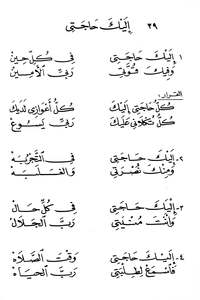 ٢٩ إليك حاجتى
١ إليك حاجتى فى كل حين
وفيك قوتى ربى الأمين
القرار:
كل حاجتى إليك كل أعوازى لديك
كل متكلانى عليك ربى يسوع
٢ـ إليك حاجتى فى التجربة
ومنك نصرتى والغلبة
٣ـ إليك حاجتى فى كل حال
وأنت منيتى رب الجلال
٤ـ إليك حاجتى وقت الصلاة
فاسمع لطلبتى رب الحياة